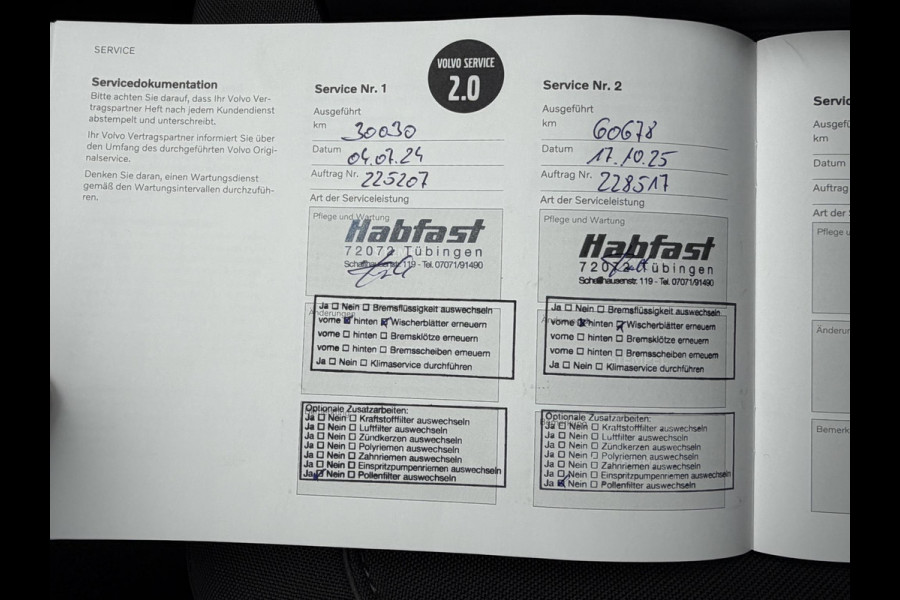 SERVICE
Servicedokumentation
Bitte achten Sie darauf, dass Ihr Volvo Ver-
tragspartner Heft nach jedem Kundendienst
abstempelt und unterschreibt.
Ihr Volvo Vertragspartner informiert Sie über
den Umfang des durchgeführten Volvo Origi-
nalservice.
Denken Sie daran, einen Wartungsdienst
gemäß den Wartungsintervallen durchzufüh-
ren.
VOLVO SERVICE
2.0
Service Nr. 1
Ausgeführt
km 30030
Datum 04.07.24
Auftrag Nr. 225207
Art der Serviceleistung
Pflege und Wartung
Habfast
72072 Tübingen
Schaffhausenstr. 119 - Tel. 07071/91490
Ja ☐ Nein ☐ Bremsflüssigkeit auswechseln
Änderungen
vorne ☒ hinten ☒ Wischerblätter erneuern
vorne ☐ hinten ☐ Bremsklötze erneuern
vorne ☐ hinten ☐ Bremsscheiben erneuern
Ja ☐ Nein ☐ Klimaservice durchführen
Optionale Zusatzarbeiten:
Ja ☐ Nein ☐ Kraftstofffilter auswechseln
Ja ☐ Nein ☐ Luftfilter auswechseln
Ja ☐ Nein ☐ Zündkerzen auswechseln
Ja ☐ Nein ☐ Polyriemen auswechseln
Ja ☐ Nein ☐ Zahnriemen auswechseln
Ja ☐ Nein ☐ Einspritzpumpenriemen auswechseln
Ja ☒ Nein ☐ Pollenfilter auswechseln
Service Nr. 2
Ausgeführt
km 60678
Datum 17.10.25
Auftrag Nr. 228517
Art der Serviceleistung
Pflege und Wartung
Habfast
72072 Tübingen
Schaffhausenstr. 119 - Tel. 07071/91490
Ja ☐ Nein ☐ Bremsflüssigkeit auswechseln
vorne ☒ hinten ☒ Wischerblätter erneuern
vorne ☐ hinten ☐ Bremsklötze erneuern
vorne ☐ hinten ☐ Bremsscheiben erneuern
Ja ☐ Nein ☐ Klimaservice durchführen
Optionale Zusatzarbeiten:
Ja ☐ Nein ☐ Kraftstofffilter auswechseln
Ja ☐ Nein ☐ Luftfilter auswechseln
Ja ☐ Nein ☐ Zündkerzen auswechseln
Ja ☐ Nein ☐ Polyriemen auswechseln
Ja ☐ Nein ☐ Zahnriemen auswechseln
Ja ☐ Nein ☐ Einspritzpumpenriemen auswechseln
Ja ☒ Nein ☐ Pollenfilter auswechseln
km
Datum
Auftrag
Art der